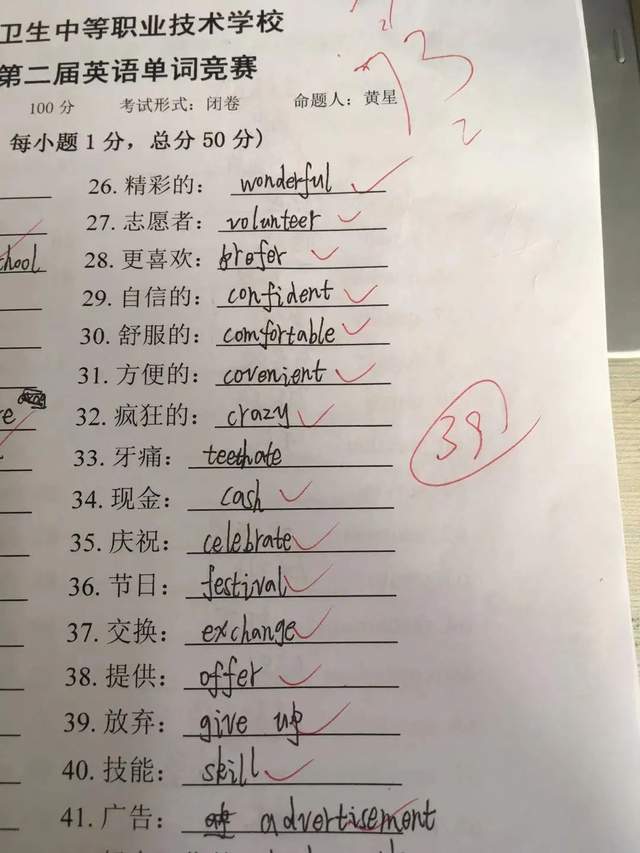 卫生中等职业技术学校
第二届英语单词竞赛
100分 考试形式：闭卷 命题人：黄星
每小题1分，总分50分）
26. 精彩的： wonderful
27. 志愿者： volunteer
28. 更喜欢： prefer
29. 自信的： confident
30. 舒服的： comfortable
31. 方便的： covenient
32. 疯狂的： crazy
33. 牙痛： teethate
34. 现金： cash
35. 庆祝： celebrate
36. 节日： festival
37. 交换： exchange
38. 提供： offer
39. 放弃： give up
40. 技能： skill
41. 广告： advertisement